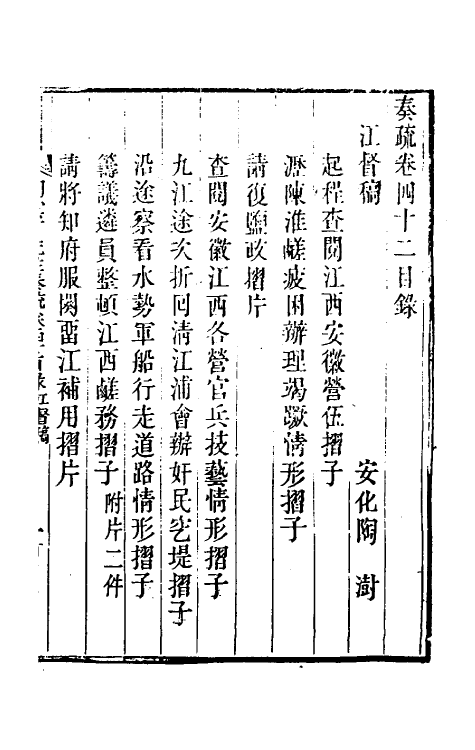 奏疏卷四十二目錄
江督稿
安化陶澍
起程查閱江西安徽營伍摺子
瀝陳淮鹺疲困辦理竭蹶情形摺子
請復鹽政摺片
查閱安徽江西各營官兵技藝情形摺子
九江途次折囘淸江浦會辦奸民乞堤摺子
沿途察看水勢軍船行走道路情形摺子
籌議遴員整頓江西鹺務摺子 附片二件
請將知府服闋留江補用摺片